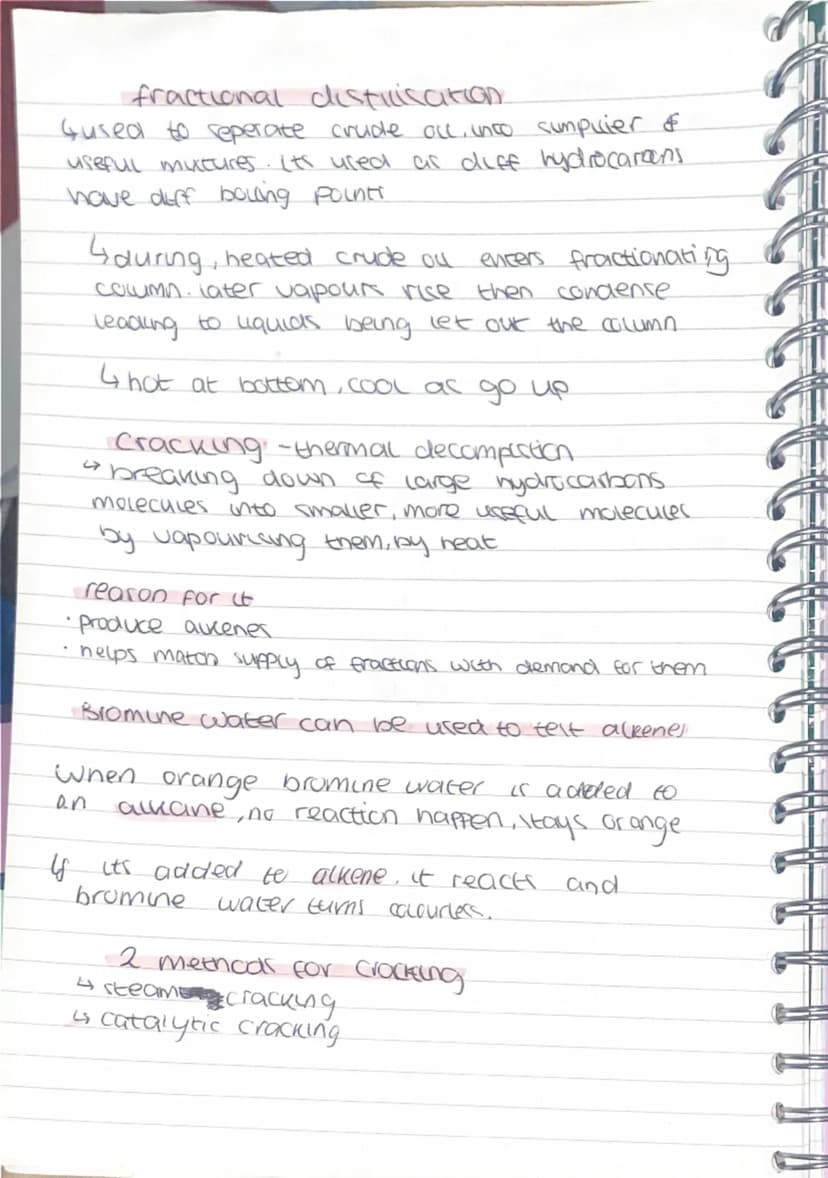 fractional distilisation
↳used to seperate crude oil, into simpuier &
useful mixtures. Its used as diff hydrocarbons
have diff boiling points
↳during, heated crude oil enters fractionating
column. later vapours rise then condense
leading to liquids being let out the column
↳hot at bottom, cool as go up
Cracking -thermal decompistion
↳breaking down of large hydrocarbons
molecules into smaller, more useful molecules
by vapourising them, by heat
reason for it
· produce alkenes
· helps match supply of fractions with demand for them
Bromine water can be used to test alkenes
When orange bromine water is added to
an alkane, no reaction happen, stays orange
If its added to alkene, it reacts and
bromine water turns colourless.
2 methods for cracking
↳ steam cracking
↳ catalytic cracking